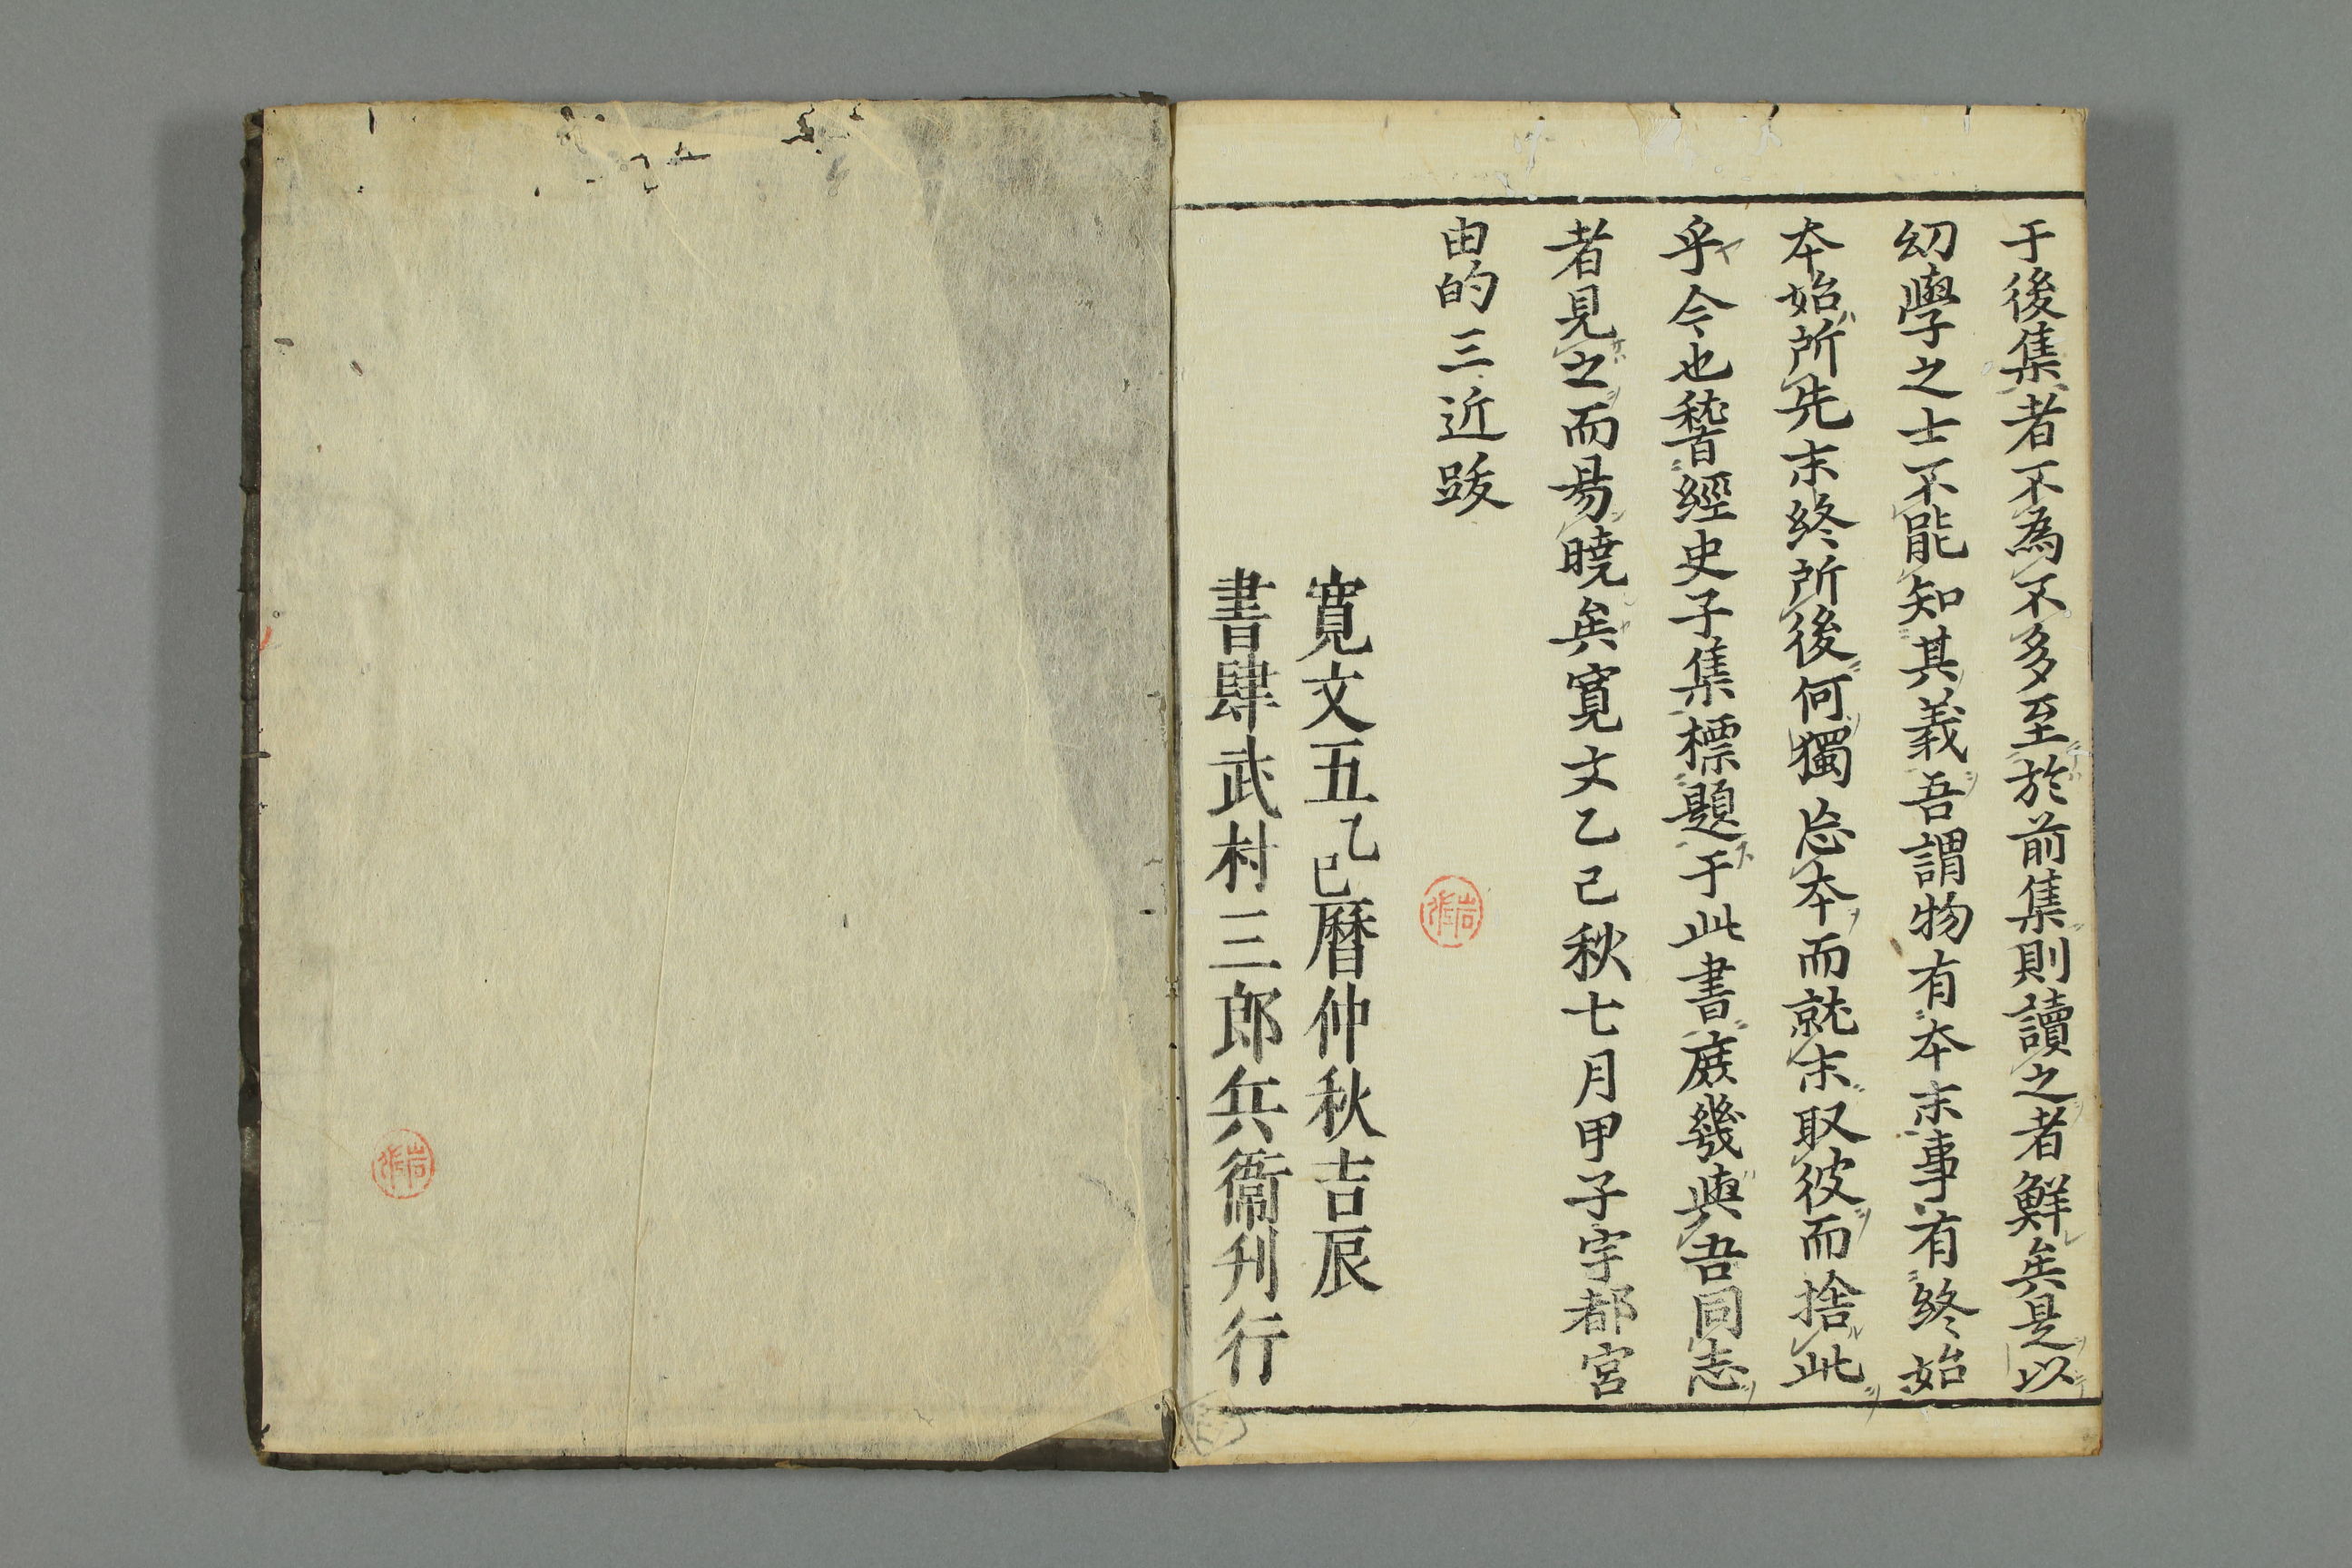 于後集者不為不多至於前集則讀之者鮮矣是以
幼學之士不能知其義吾謂物有本末事有終始
本始所先末終所後何獨忘本而就末取彼而捨此
乎今也稽經史子集標題于此書庶幾與吾同志
者見之而易曉矣寛文乙巳秋七月甲子宇都宮
由的三近跋
寛文五乙巳暦仲秋吉辰
書肆武村三郎兵衛刋行